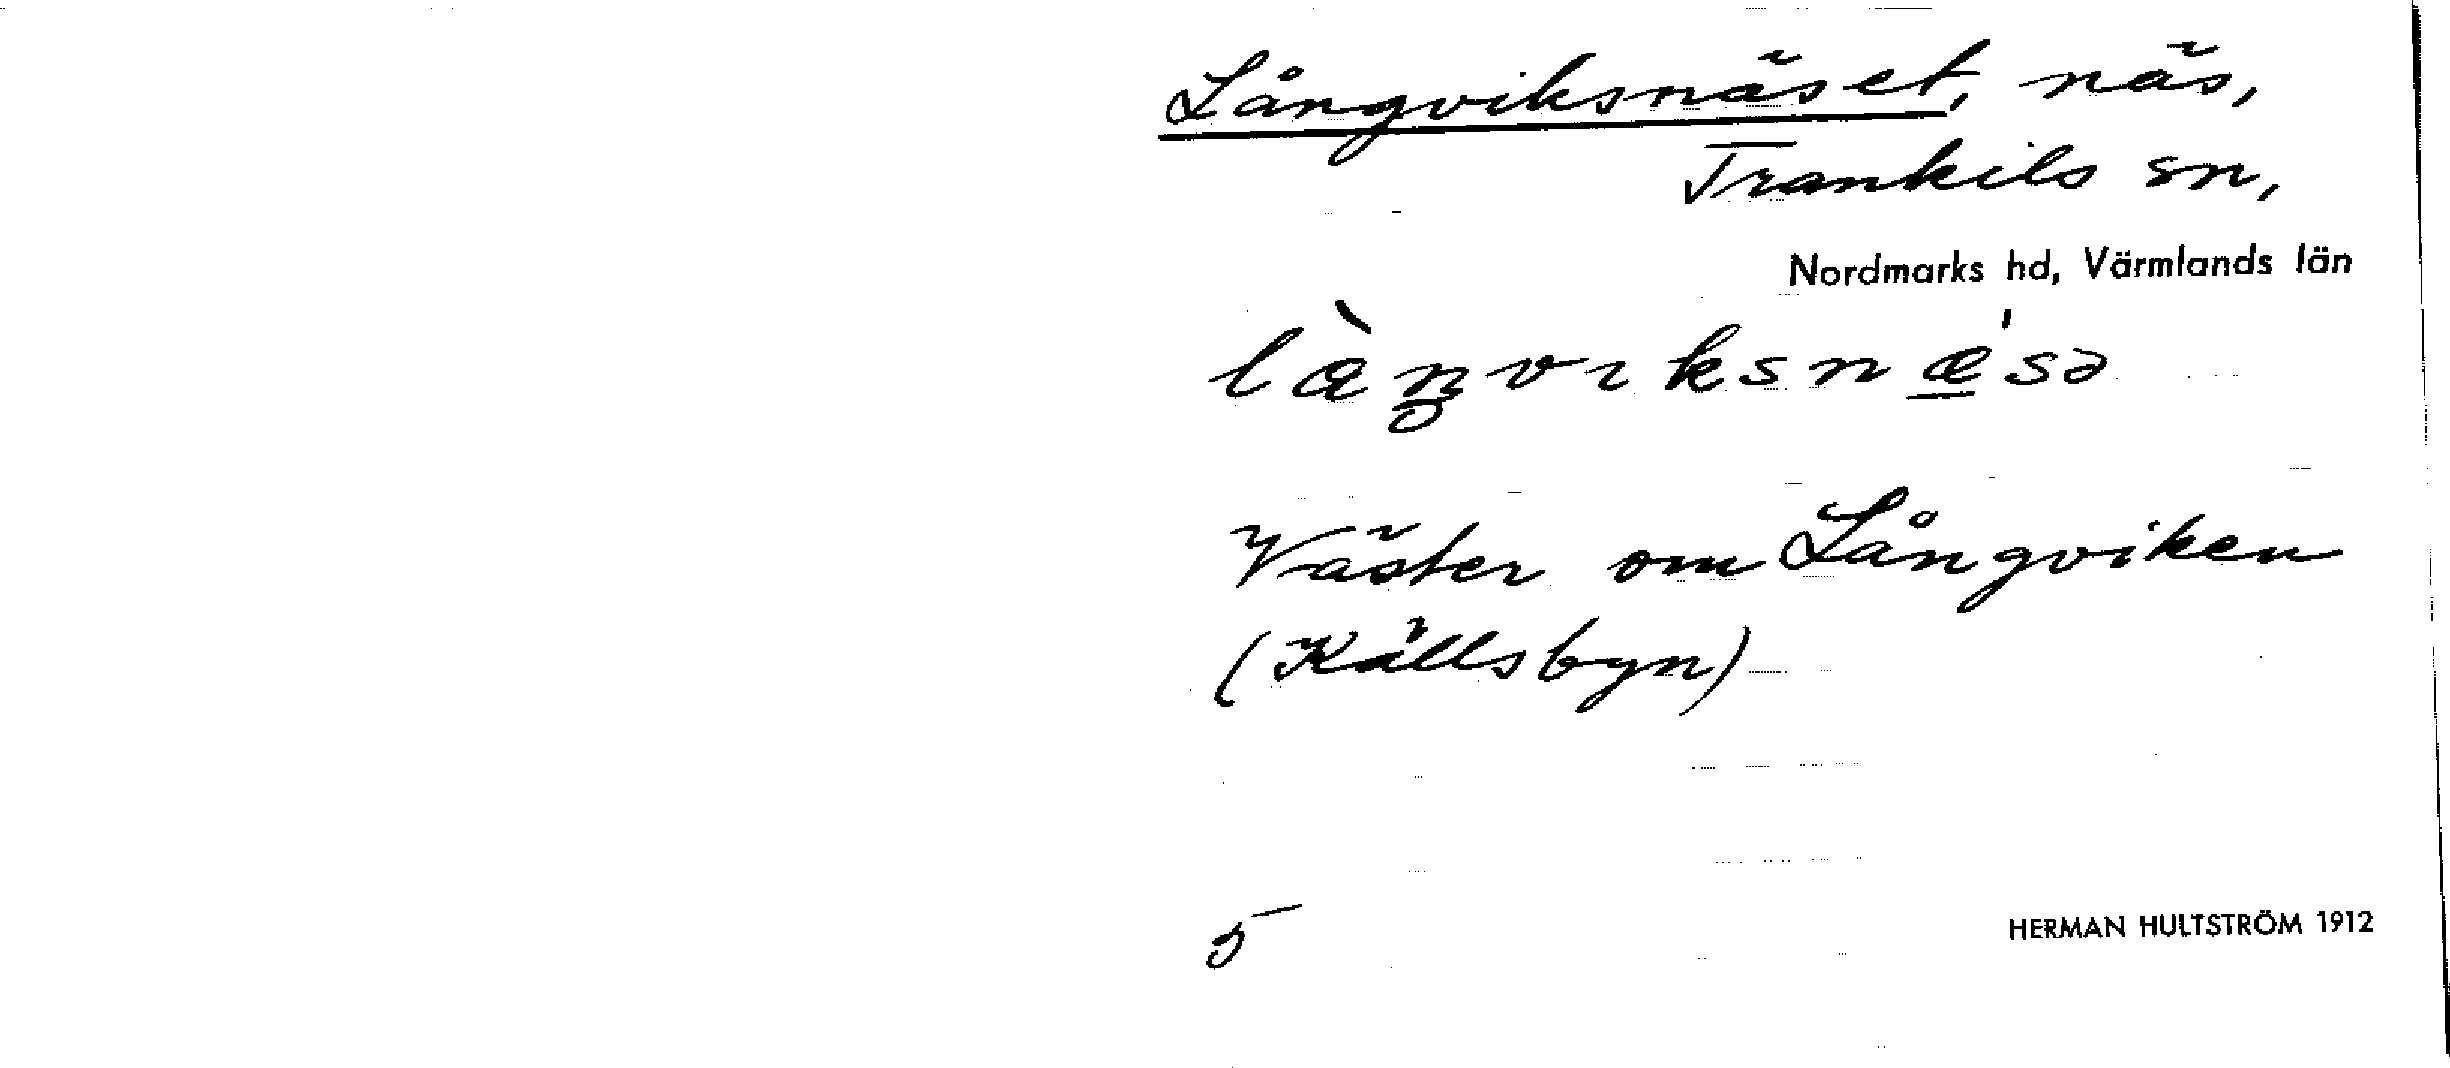 Långviksnäset, näs,
Trankils sn,
Nordmarks hd, Värmlands län
lòŋvıksnǽsə
Väster om Långviken
(Källsbyn)
5
HERMAN HULTSTRÖM 1912